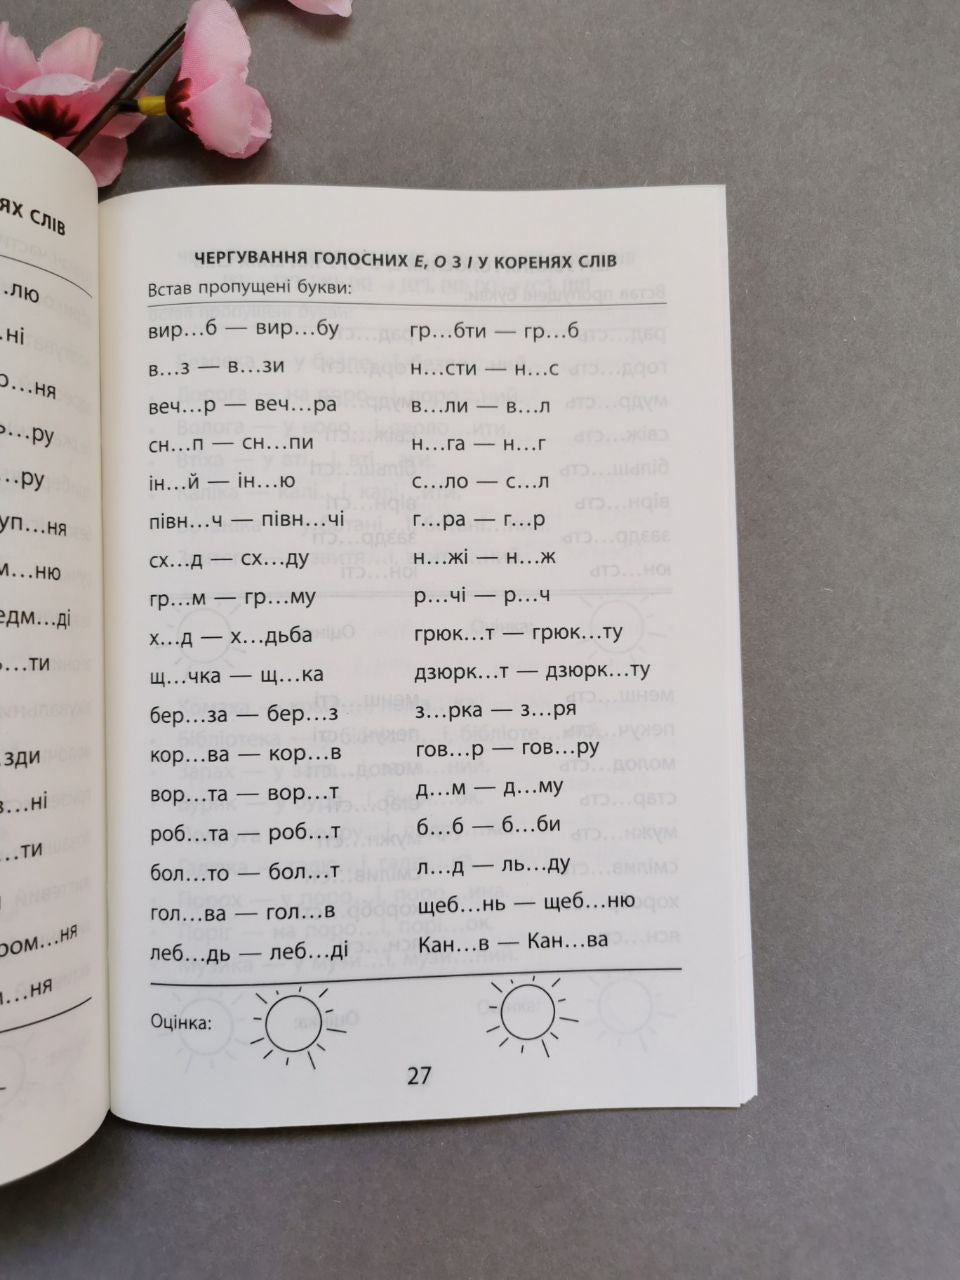 ЯХ СЛІВ
...лю
...ні
...ня
...ру
...ру
уп...ня
м...ню
едм...ді
...ти
зди
...ні
...ти
ром...ня
...ня
ЧЕРГУВАННЯ ГОЛОСНИХ Е, О З І У КОРЕНЯХ СЛІВ
Встав пропущені букви:
вир...б — вир...бу
в...з — в...зи
веч...р — веч...ра
сн...п — сн...пи
ін...й — ін...ю
півн...ч — півн...чі
сх...д — сх...ду
гр...м — гр...му
х...д — х...дьба
щ...чка — щ...ка
бер...за — бер...з
кор...ва — кор...в
вор...та — вор...т
роб...та — роб...т
бол...то — бол...т
гол...ва — гол...в
леб...дь — леб...ді
гр...бти — гр...б
н...сти — н...с
в...ли — в...л
н...га — н...г
с...ло — с...л
г...ра — г...р
н...жі — н...ж
р...чі — р...ч
грюк...т — грюк...ту
дзюрк...т — дзюрк...ту
з...рка — з...ря
гов...р — гов...ру
д...м — д...му
б...б — б...би
л...д — ль...ду
щеб...нь — щеб...ню
Кан...в — Кан...ва
Оцінка:
27